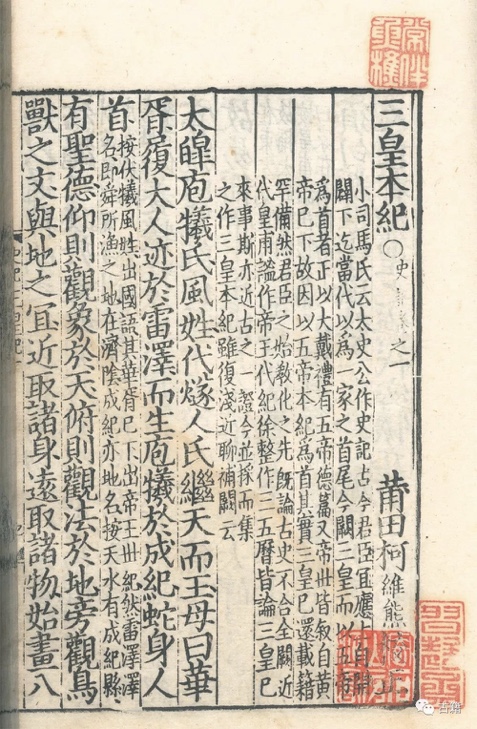 三皇本紀〇史之一 莆田柯維熊
小司馬氏云太史公作史記古今君臣宜應上自開
闢下迄當代以爲一家之首尾今闕三皇而以五帝
爲首者正以大戴禮有五帝德篇又帝世皆敘自黃
帝已下故因以五帝本紀爲首其實三皇已還載籍
罕備然君臣之始教化之先旣論古史不合全闕近
代皇甫謐作帝王代紀徐整作三五曆皆論三皇已
來事斯亦近古之一證今並採而集
之作三皇本紀雖復淺近聊補闕云
太皥庖犧氏風姓代燧人氏繼天而王母曰華
胥履大人迹於雷澤而生庖犧於成紀蛇身人
首按伏犧風姓出國語其華胥已下出帝王世紀然雷澤澤
名卽舜所漁之地在濟陰成紀亦地名按天水有成紀縣
有聖德仰則觀象於天俯則觀法於地旁觀鳥
獸之文與地之宜近取諸身遠取諸物始畫八
古籍